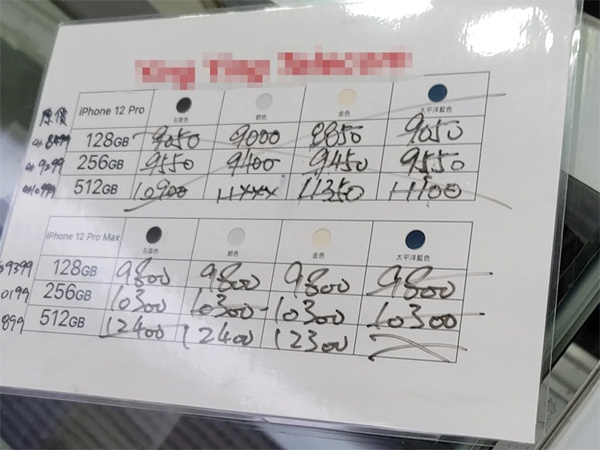 原價 iPhone 12 Pro 石墨色 銀色 金色 太平洋藍色
8499 128GB 9050 9000 8850 9050
9099 256GB 9550 9400 9450 9550
10999 512GB 10900 11xxx 11350 11100
iPhone 12 Pro Max 石墨色 銀色 金色 太平洋藍色
9399 128GB 9800 9800 9800 9800
0199 256GB 10300 10300 10300 10300
899 512GB 12400 12400 12300